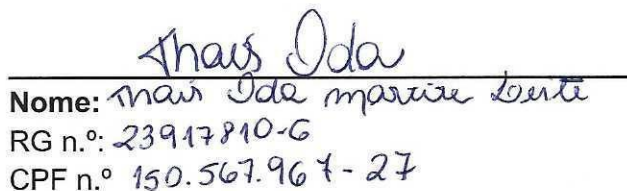 Thais Ida
Nome: Thais Ida Martire Leite
RG n.º: 23917810-6
CPF n.º 150.567.967-27